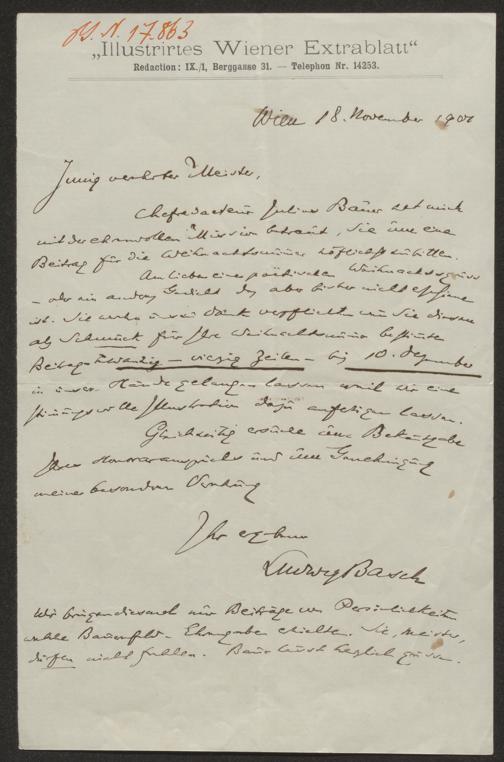 J. N. 17.863
„Illustrirtes Wiener Extrablatt“
Redaction: IX./1, Berggasse 31. — Telephon Nr. 14253.
Wien 18. November
Innig verehrter Meister,
Chefredacteur Julius Bauer hat mich
mit der ehrenvollen Mission betraut, Sie um eine
Beitrag für die Weihnachtsnummer höflichst zu bitten.
Am liebsten eine poetischen
– oder ein andres Gedicht das aber bisher nicht
ist. Sie uns Dank verpflichten Sie diesen
als Schmuck für Ihre Weihnachtsnummer bestimmte
Beitrag – vierzig Zeilen – bis 10. Dezember
in unsere Hände gelangen lassen weil wir eine
stimmungsvolle Illustration dazu anfertigen lassen.
Gleichzeitig ersuche um Bekanntgabe
Ihrer Honoraransprüche und um Genehmigung
meiner besondern
Ihr ergebener
Ludwig Basch
Wir bringen diesmal nur Beiträge von Persönlichkeiten
welche Bauernfeld- Ehrengaben erhielten. Sie, Meister,
dürfen nicht fehlen. Bauer lässt herzlich grüssen.